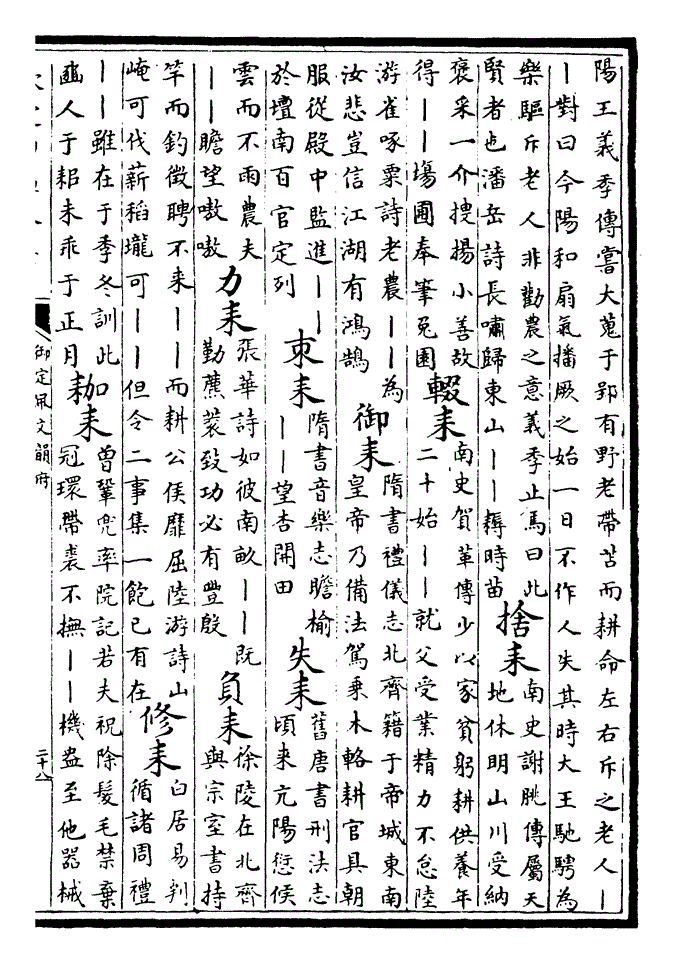 陽王義季傳嘗大蒐于郢有野老帶苫而耕命左右斥之老人｜
｜對曰今陽和扇氣播厥之始一日不作人失其時大王馳騁為
樂驅斥老人非勸農之意義季止焉曰此
賢者也潘岳詩長嘯歸東山｜｜耨時苗
捨耒
南史謝朓傳屬天
地休明山川受納
褒采一介搜揚小善故
得｜｜場圃奉筆兔園
輟耒
南史賀革傳少以家貧躬耕供養年
二十始｜｜就父受業精力不怠陸
游雀啄粟詩老農｜｜為
汝悲豈信江湖有鴻鵠
御耒
隋書禮儀志北齊籍于帝城東南
皇帝乃備法駕乘木輅耕官具朝
服從殿中監進｜｜
於壇南百官定列
束耒
隋書音樂志瞻榆
｜｜望杏開田
失耒
舊唐書刑法志
頃来亢陽愆候
雲而不雨農夫
｜｜瞻望嗷嗷
力耒
張華詩如彼南畝｜｜既
勤藨蓘致功必有豐殷
負耒
徐陵在北齊
與宗室書持
竿而釣徵聘不来｜｜而耕公侯靡屈陸游詩山
崦可伐薪稻壠可｜｜但令二事集一飽已有在
修耒
白居易判
循諸周禮
｜｜雖在于季冬訓此
豳人于耜未乖于正月
耞耒
曾鞏兜率院記若夫祝除髮毛禁棄
冠環帶裘不撫｜｜機盎至他器械
御定佩文韻府
二十八